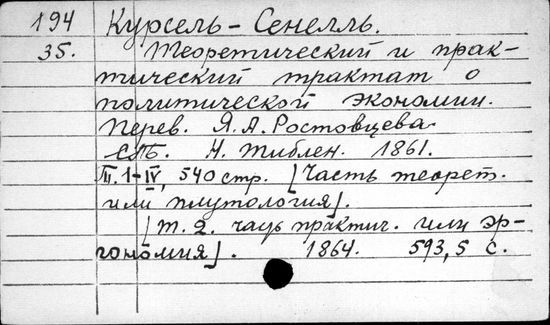 194 Курсель-Сенелль.
35. Теоретический и прак-
тический трактат о
политической экономии.
Перев. Я.А.Ростовцева.
СПБ. Н. Тиблен. 1861.
III. 1-IV, 540 стр. [Часть теорет.
или плутология].
[т. 2. чаць практич. или эр-
гономия]. 1864. 593,5 с.